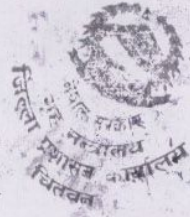 नेपाल सरकार
गृह मन्त्रालय
जिल्ला प्रशासन कार्यालय
चितवन